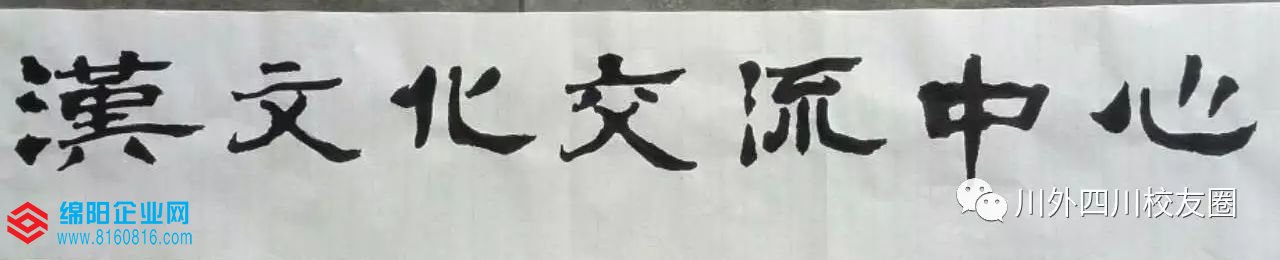 漢文化交流中心
绵阳企业网
www.8160816.com
川外四川校友圈